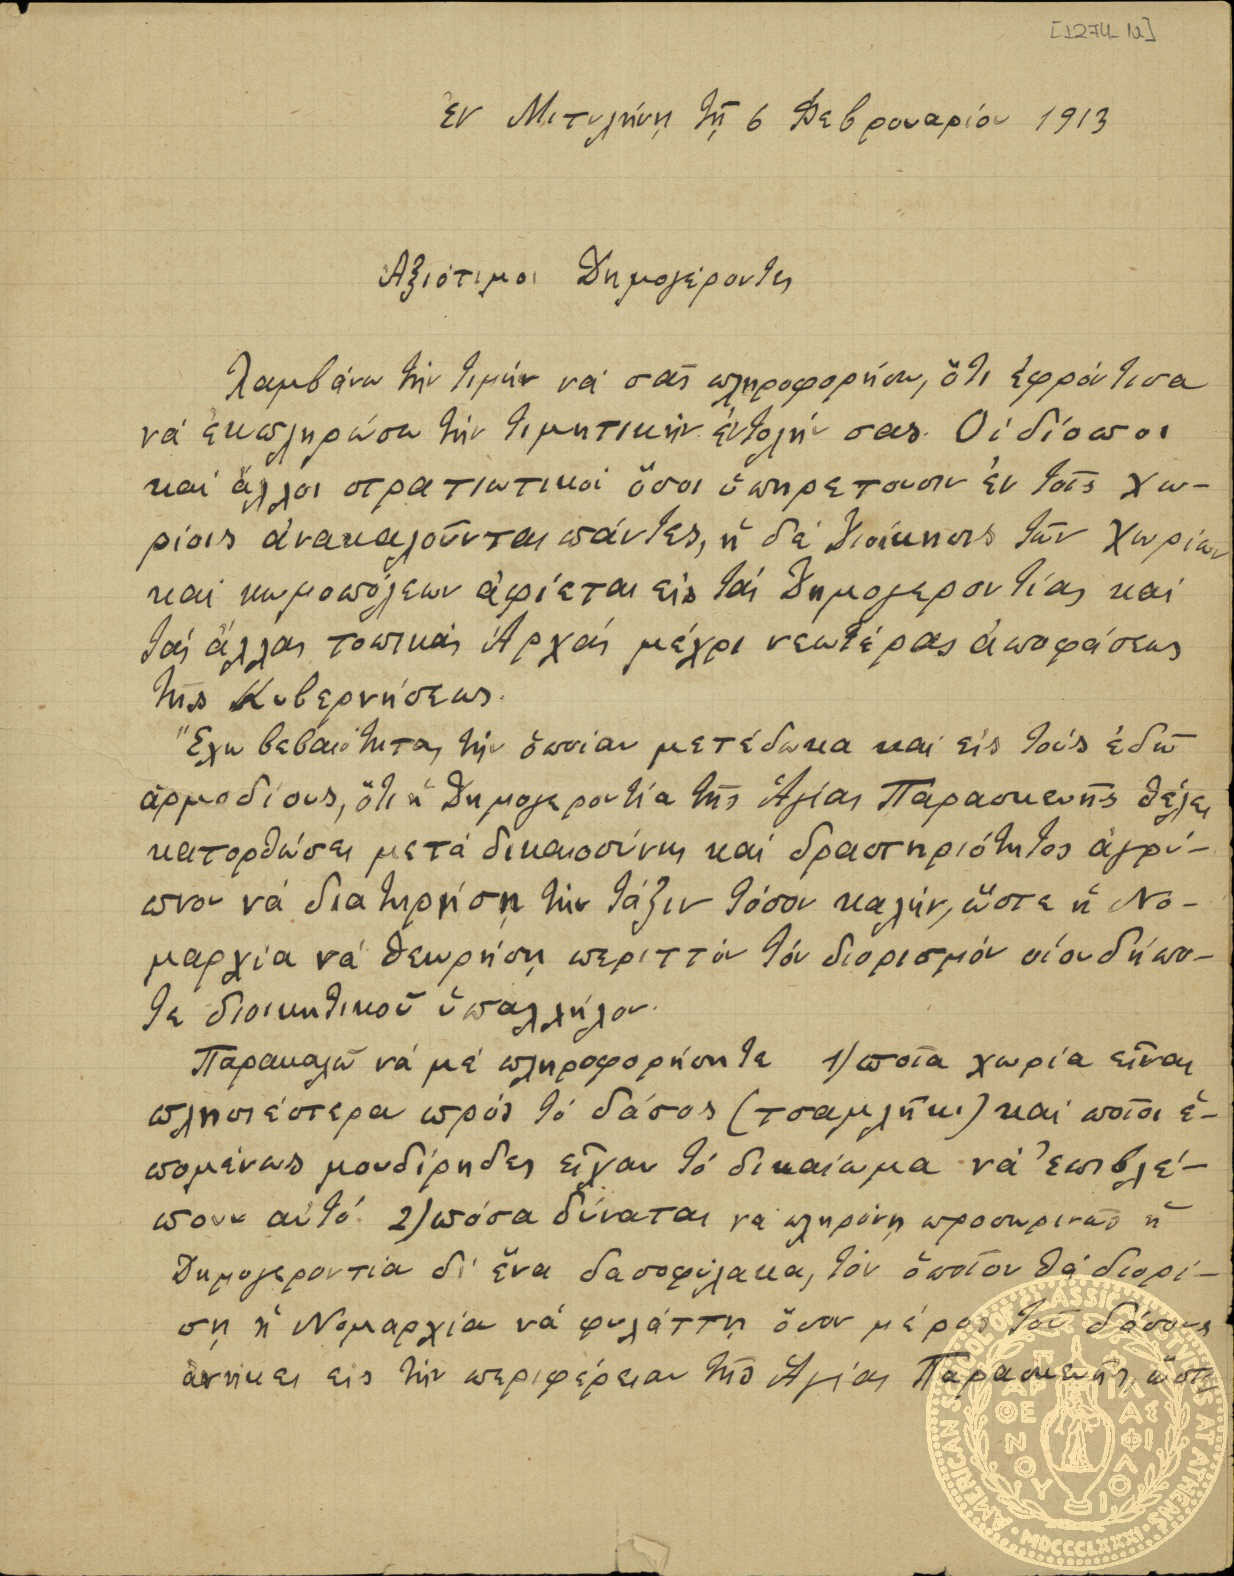 [1274-12]
Ἐν Μιτυλήνῃ τῇ 6 Φεβρουαρίου 1913
Ἀξιότιμοι Δημογέροντες
Λαμβάνω τὴν τιμὴν νὰ σᾶς πληροφορήσω, ὅτι ἐφρόντισα
νὰ ἐκπληρώσω τὴν τιμητικὴν ἐντολήν σας. Οἱ δίοποι
καὶ ἄλλοι στρατιωτικοὶ ὅσοι ὑπηρετοῦσιν ἐν τοῖς χω-
ρίοις ἀνακαλοῦνται πάντες, ἡ δὲ Διοίκησις τῶν χωρίων
καὶ κωμοπόλεων ἀφίεται εἰς τὰς Δημογεροντίας καὶ
τὰς ἄλλας τοπικὰς Ἀρχὰς μέχρι νεωτέρας ἀποφάσεως
τῆς Κυβερνήσεως.
Ἔχω βεβαιότητα, τὴν ὁποίαν μετέδωκα καὶ εἰς τοὺς ἐδῶ
ἁρμοδίους, ὅτι ἡ Δημογεροντία τῆς Ἁγίας Παρασκευῆς θέλει
κατορθώσει μετὰ δικαιοσύνης καὶ δραστηριότητος ἀγρύ-
πνου νὰ διατηρήσῃ τὴν τάξιν τόσον καλήν, ὥστε ἡ Νο-
μαρχία νὰ θεωρήσῃ περιττὸν τὸν διορισμὸν οἱουδήπο-
τε διοικητικοῦ ὑπαλλήλου.
Παρακαλῶ νὰ μὲ πληροφορήσητε 1) ποῖα χωρία εἶναι
πλησιέστερα πρὸς τὸ δάσος (τσαμλῆκι) καὶ ποῖοι ἑ-
πομένως μουδίρηδες εἶχαν τὸ δικαίωμα νὰ ἐπιβλέ-
πουν αὐτό. 2) πόσα δύναται νὰ πληρώνῃ προσωρινῶς ἡ
Δημογεροντία δι' ἕνα δασοφύλακα, τὸν ὁποῖον θὰ διορί-
σῃ ἡ Νομαρχία νὰ φυλάττῃ ὅσον μέρος τοῦ δάσους
ἀνήκει εἰς τὴν περιφέρειαν τῆς Ἁγίας Παρασκευῆς, ὥστε
AMERICAN SCHOOL OF CLASSICAL STUDIES AT ATHENS · MDCCCLXXXI ·
ΠΑΡΘΕΝΟΥ ΦΙΛΑΣ ΦΙΛΟΙ